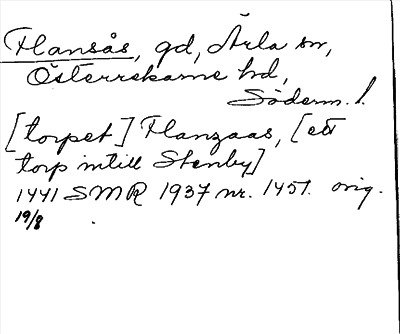 Flansås, gd, Ärla sn,
Österrekarne hd,
Söderm. l.
[torpet] Flanzaas, [ett
torp intill Stenby]
1441 SMR 1937 nr. 1451. orig.
19/8